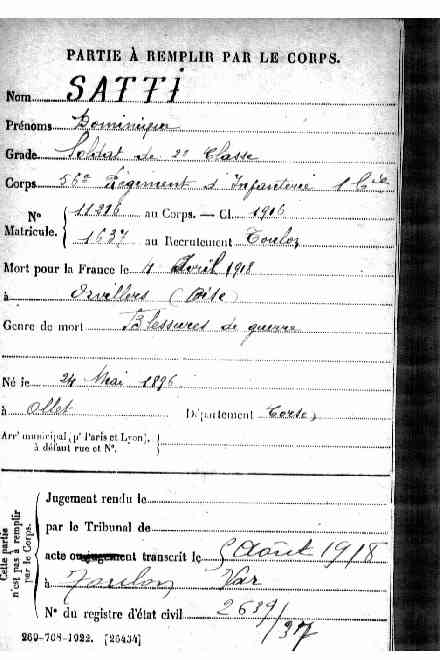 PARTIE À REMPLIR PAR LE CORPS.
Nom SATTI
Prénoms Dominique
Grade Soldat de 2e Classe
Corps 56e Régiment d'Infanterie 1 Cie
N° Matricule. { 11316 au Corps. — Cl. 1916
1637 au Recrutement Toulon
Mort pour la France le 11 Avril 1918
à Orvillers (Oise)
Genre de mort Blessures de guerre
Né le 24 Mai 1896
à Ollet Département Corse,
Arrt municipal (pr Paris et Lyon),
à défaut rue et N°.
Cette partie
n'est pas à remplir
par le Corps.
Jugement rendu le
par le Tribunal de
acte ou jugement transcrit le 5 Août 1918
à Toulon Var
N° du registre d'état civil 2639/37
269-708-1922. [25434]